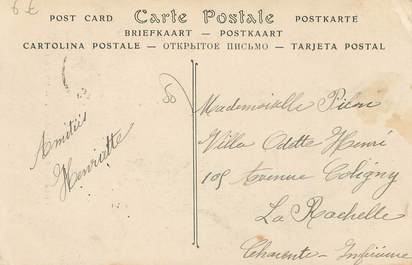 6 €
POST CARD Carte Postale POSTKARTE
BRIEFKAART — POSTKAART
CARTOLINA POSTALE — ОТКРЫТОЕ ПИСЬМО — TARJETA POSTAL
Amitiés
Henriette
Mademoiselle
Villa Odette Henri
105 Avenue Coligny
La Rochelle
Charente-Inférieure